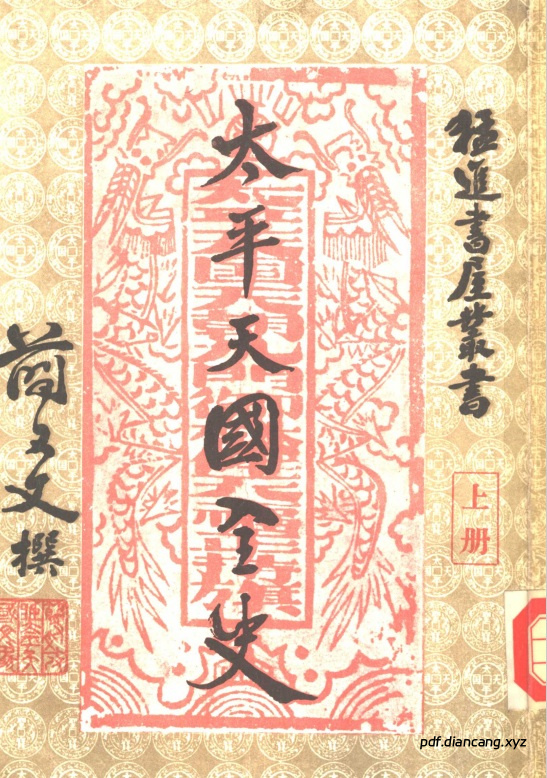 猛進書屋叢書
上册
太平天國全史
簡又文撰
pdf.diancang.xyz